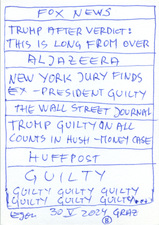 FOX NEWS
TRUMP AFTER VERDICT:
THIS IS LONG FROM OVER
ALJAZEERA
NEW YORK JURY FINDS
EX-PRESIDENT GUILTY
THE WALL STREET JOURNAL
TRUMP GUILTY ON ALL
COUNTS IN HUSH-MONEY CASE
HUFFPOST
GUILTY
GUILTY GUILTY GUILTY
GUILTY GUILTY GUILTY...
30 V 2024 GRAZ